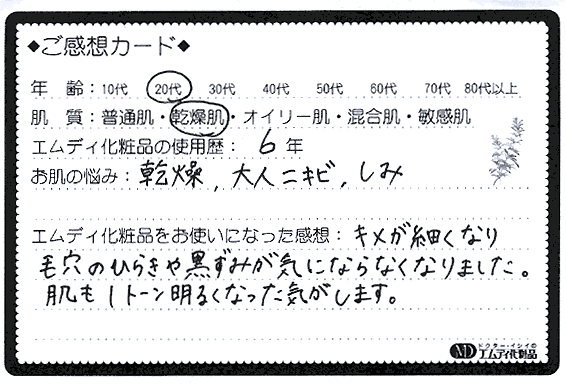 ◆ご感想カード◆
年 齢：10代 20代 30代 40代 50代 60代 70代 80代以上
肌 質：普通肌・乾燥肌・オイリー肌・混合肌・敏感肌
エムディ化粧品の使用歴：6年
お肌の悩み：乾燥，大人ニキビ，しみ
エムディ化粧品をお使いになった感想：キメが細くなり
毛穴のひらきや黒ずみが気にならなくなりました。
肌も1トーン明るくなった気がします。
MD ドクター・イシイの
エムディ化粧品